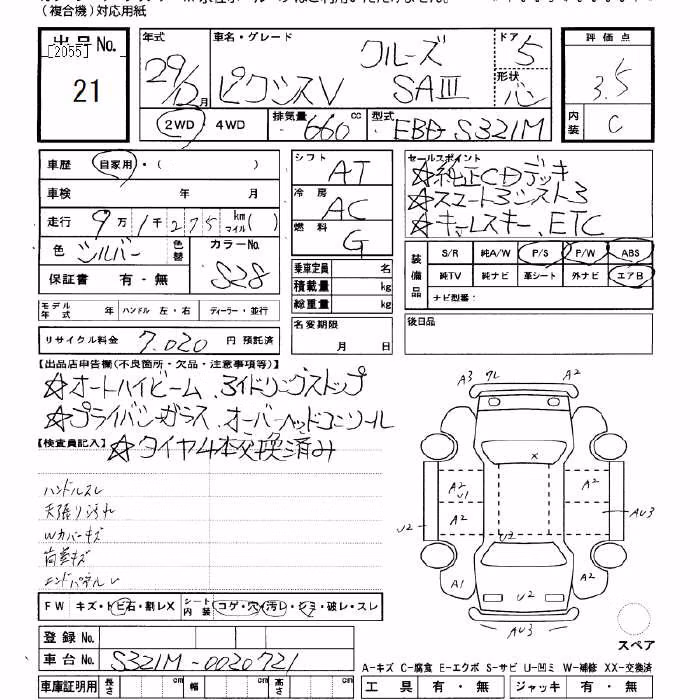 (複合機)対応用紙
出品No. [2055] 21
年式 29/12月
車名・グレード クルーズ ピクシスV SAIII
ドア 5
形状 バン
評価点 3.5
内装 C
2WD・4WD
排気量 660 cc
型式 EBD-S321M
車歴 自家用・( )
車検 年 月
走行 9万1千275 km マイル( )
色 シルバー 色替 カラーNo. S28
保証書 有・無
シフト AT
冷房 AC
燃料 G
乗車定員 名
積載量 kg
総重量 kg
名変期限 月 日
セールスポイント
☆純正CDデッキ
☆スマートアシスト3
☆キーレスキー、ETC
装備品 S/R 純A/W P/S P/W ABS
純TV 純ナビ 革シート 外ナビ エアB
ナビ型番:
後日品
モデル年式 年 ハンドル 左・右 ディーラー・並行
リサイクル料金 7.020 円 預託済
【出品店申告欄(不良箇所・欠品・注意事項等)】
☆オートハイビーム、アイドリングストップ
☆プライバシーガラス、オーバーヘッドコンソール
☆タイヤ4本交換済み
【検査員記入】
ハンドルスレ
天張り汚れ
Wカバーキズ
荷室キズ
エンドパネルレ
A3 クレ A2
X
A2 U1 A2 A2
U2 U2 AU3
A1 U2 A2
AU3
FW キズ・トビ石・割レX シート内装 コゲ・穴・汚レ・シミ・破レ・スレ
登録No.
車台No. S321M-0020721
スペア
A-キズ C-腐食 E-エクボ S-サビ U-凹ミ W-補修 XX-交換済
車庫証明用 長さ cm 幅 cm 高さ cm 工具 有・無 ジャッキ 有・無